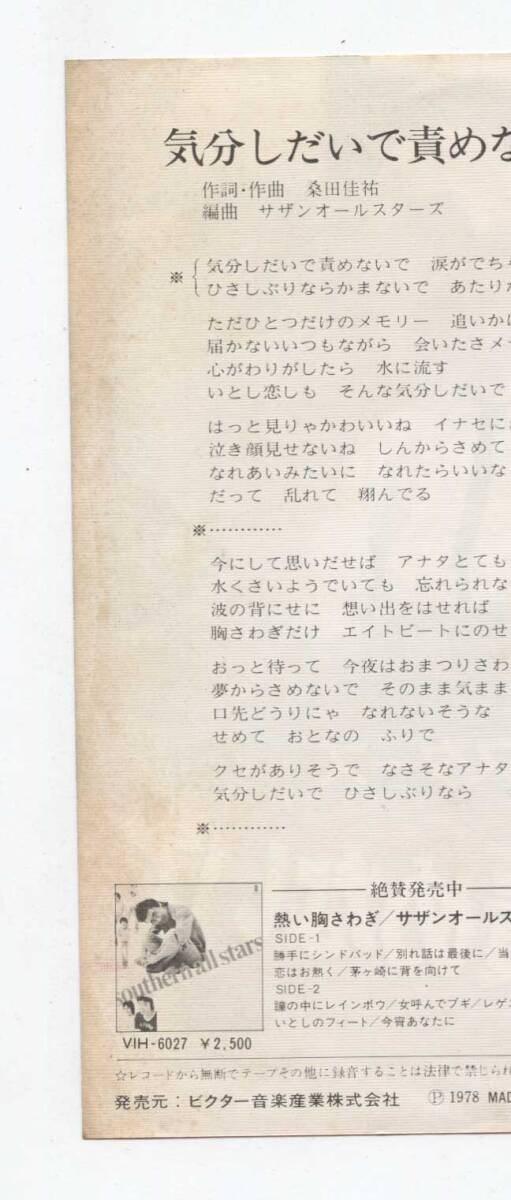 気分しだいで責めな
作詞・作曲　桑田佳祐
編曲　サザンオールスターズ
※
気分しだいで責めないで　涙がでち
ひさしぶりならかまないで　あたりか
ただひとつだけのメモリー　追いかけ
届かないいつもながら　会いたさメ
心がわりがしたら　水に流す
いとし恋しも　そんな気分しだいで
はっと見りゃかわいいね　イナセに
泣き顔見せないね　しんからさめて
なれあいみたいに　なれたらいいな
だって　乱れて　翔んでる
※…………
今にして思いだせば　アナタとても
水くさいようでいても　忘れられな
波の背にせに　想い出をはせれば
胸さわぎだけ　エイトビートにのせ
おっと待って　今夜はおまつりさわ
夢からさめないで　そのまま気まま
口先どうりにゃ　なれないそうな
せめて　おとなの　ふりで
クセがありそうで　なさそなアナタ
気分しだいで　ひさしぶりなら
※…………
southern all stars
VIH-6027　￥2,500
絶賛発売中
熱い胸さわぎ／サザンオールス
SIDE-1
勝手にシンドバッド／別れ話は最後に／当
恋はお熱く／茅ヶ崎に背を向けて
SIDE-2
瞳の中にレインボウ／女呼んでブギ／レゲ
いとしのフィート／今宵あなたに
☆レコードから無断でテープその他に録音することは法律で禁じられ
発売元：ビクター音楽産業株式会社　Ⓟ 1978 MAD